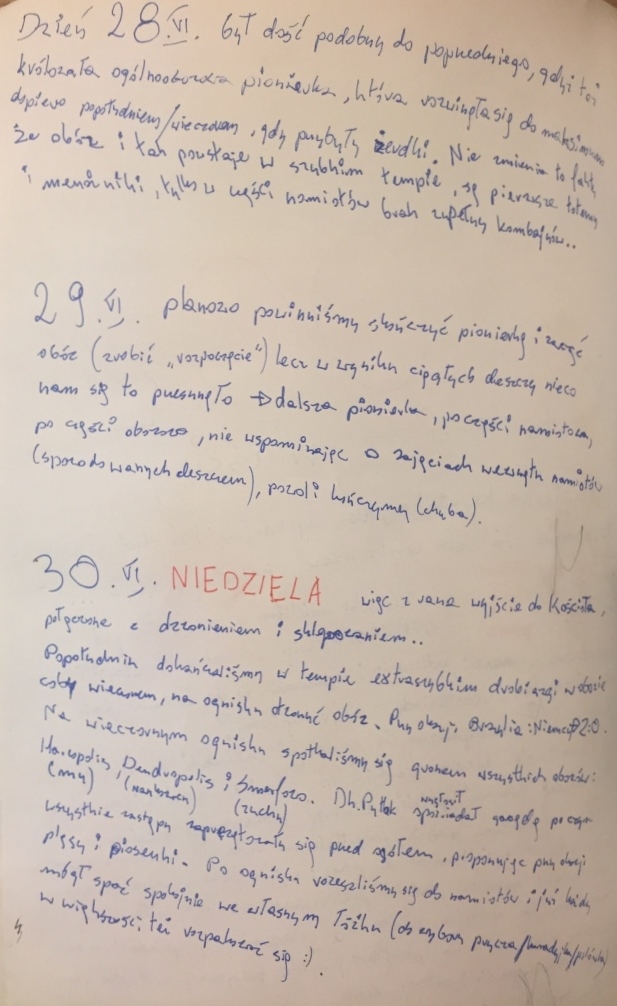 Dzień 28.VI. był dość podobny do poprzedniego, gdyż też
królowała ogólnoobozowa pionierka, która rozwinęła się do maksimum
dopiero popołudniem/wieczorem, gdy przybyły żerdki. Nie zmienia to faktu,
że obóz i tak powstaje w szybkim tempie, są pierwsze totemy
i menażniki, tylko w części namiotów brak zupełny kombajnów..
29.VI. planowo powinniśmy skończyć pionierkę i zacząć
obóz (zrobić „rozpoczęcie") lecz w wyniku ciągłych deszczy nieco
nam się to przesunęło → dalsza pionierka, po części namiotowa,
po części obozowa, nie wspominając o zajęciach wewnątrz namiotów
(spowodowanych deszczem), powoli kończymy (chyba).
30.VI. NIEDZIELA więc z rana wyjście do Kościoła,
połączone z dzwonieniem i sklepowaniem..
Popołudniu dokańczaliśmy w tempie extraszybkim drobiazgi w obozie
coby wieczorem, na ognisku otworzyć obóz. Przy okazji, Brazylia:Niemcy 2:0.
Na wieczornym ognisku spotkaliśmy się gronem wszystkich obozów:
Haropolis, Dendropolis i Smerfowo. Dh. Pytek wygłosił gawędę po czym
(my) (zuchy)
wszystkie zastępy zaprezentowały się przed ogółem, proponując przy okazji
pląsy i piosenki. Po ognisku rozeszliśmy się do namiotów i już każdy
mógł spać spokojnie we własnym łóżku (do wyboru prycza/kanadyjka/polówka)
w większości też rozpakować się :).